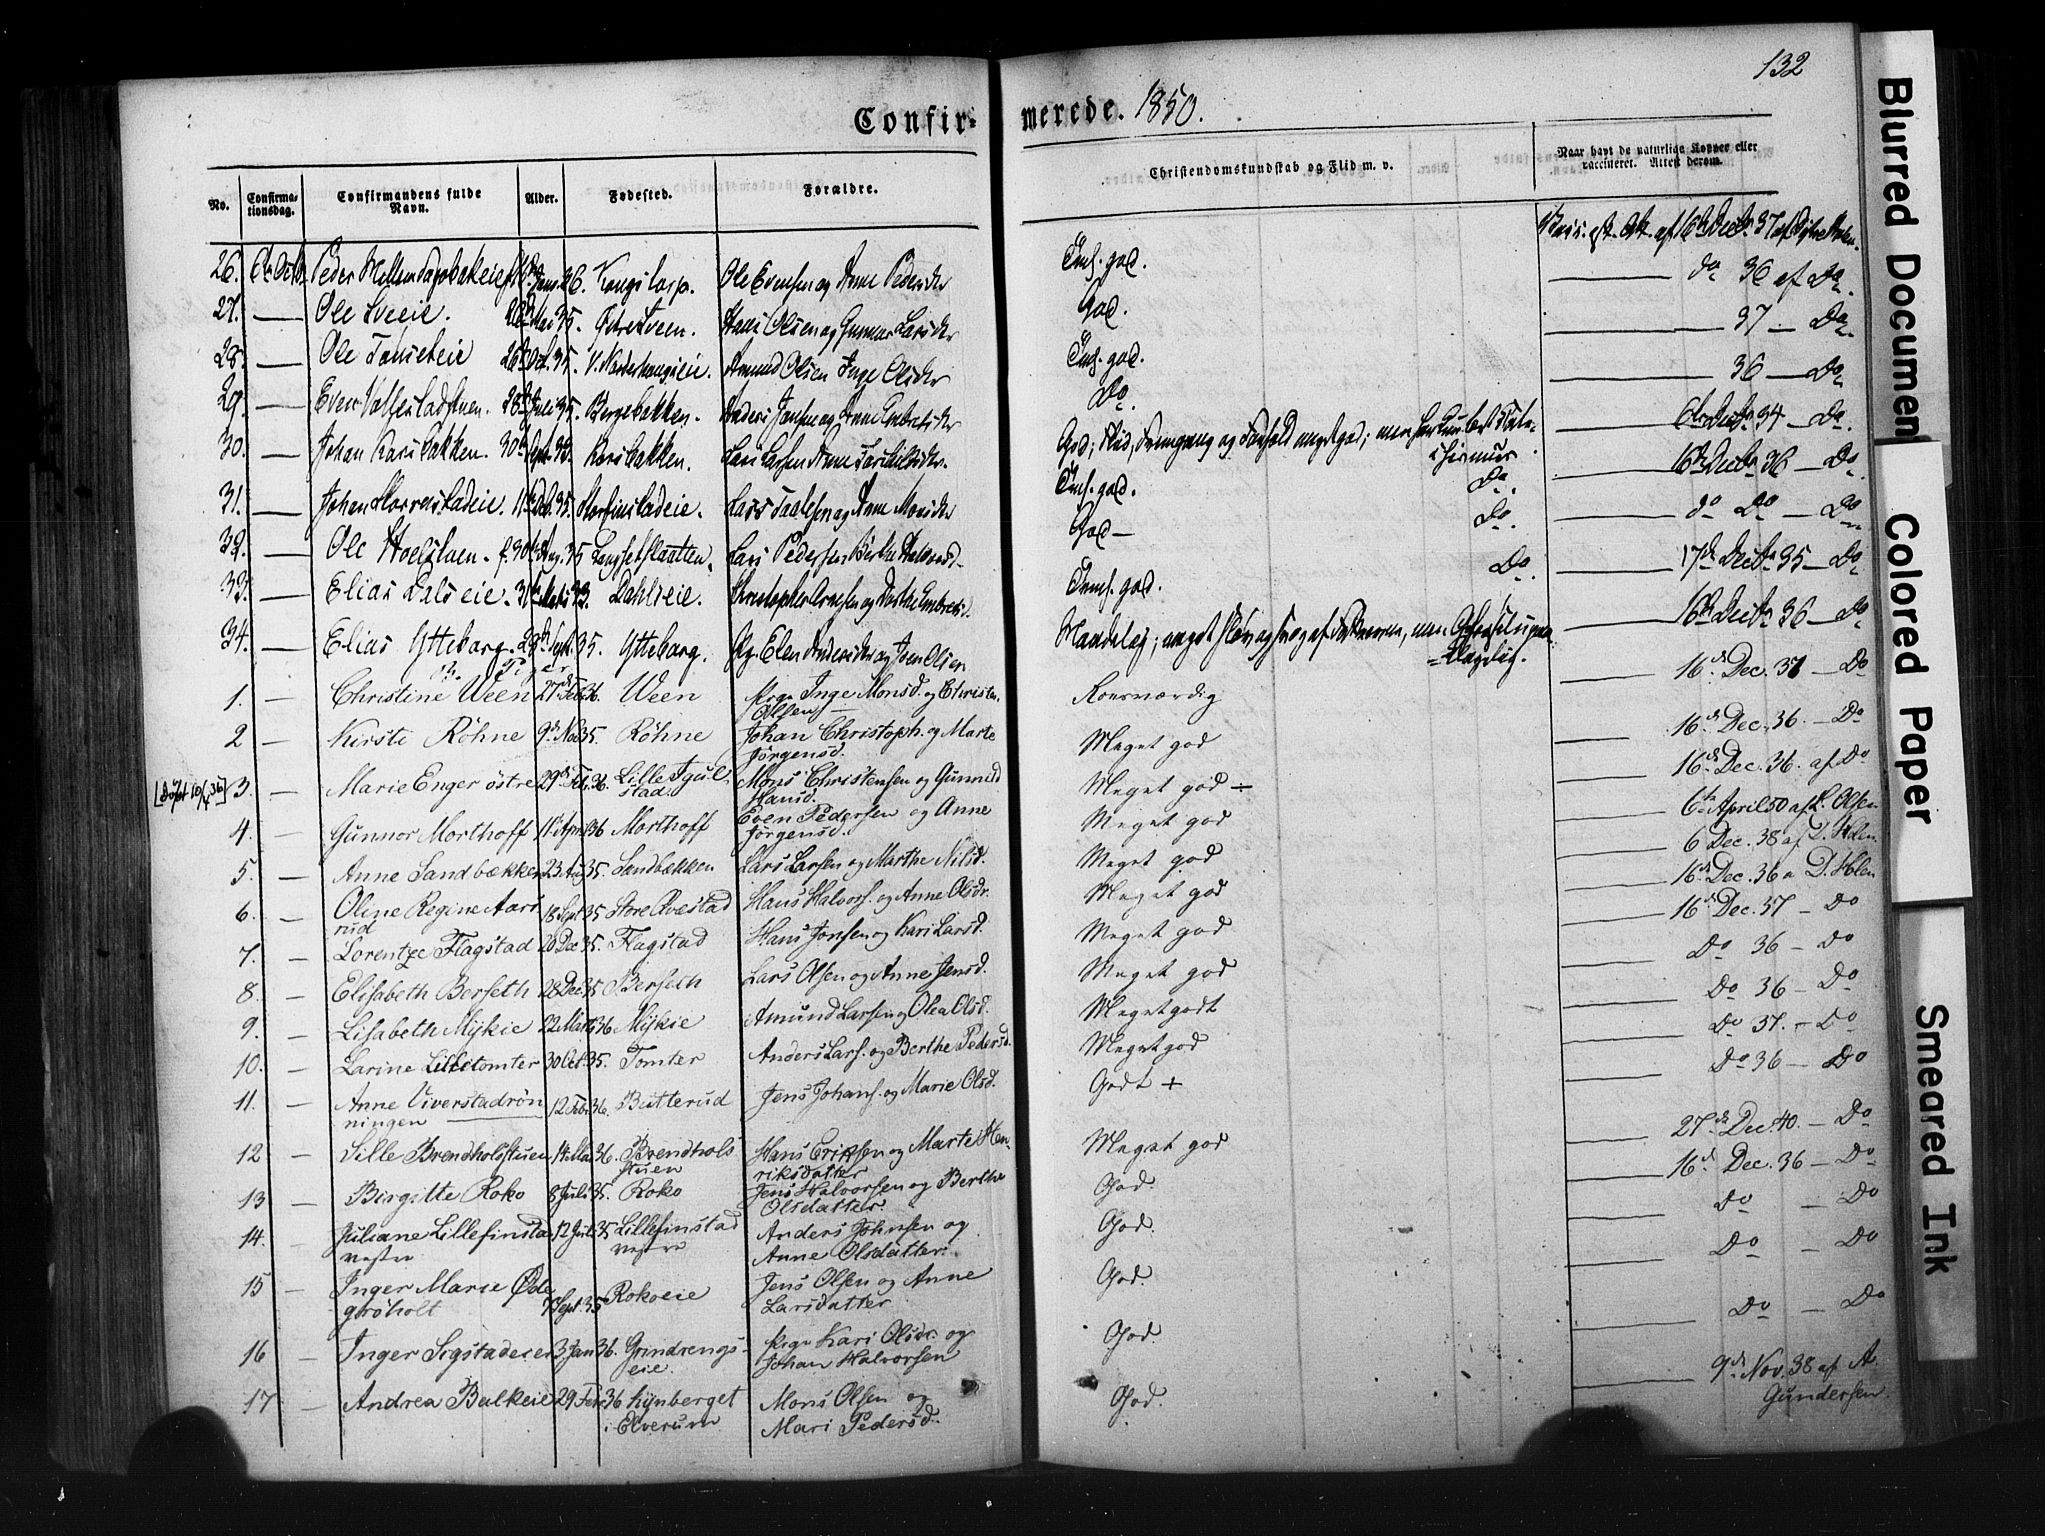 132
Confirmerede. 1850.
No. Confirmationsdag. Confirmandens fulde Navn. Alder. Fødested. Forældre. Christendomskundskab og Flid m. v. Naar havt de naturlige Kopper eller vaccineret. Attest derom.
26. Peder Kongstorp. Ole Evensen og Anne Pedersdr God. 16de Decbr 37 af
27. — Ole Sveie. Mai 35. Østre Sveen. Hans Olsen og Gunnor Larsdr God. — do 36 af Do.
28. — Ole 26 Oct. 35. Amund Olsen Inge Olsdr god. — 37 — Do
29. — Even 28 Juli 35. Bergebakken. Anders Jensen og Anne Embretsdr Do. — 36 — Do
30. — Johan Korsbakken. 30 Sept. 33. Korsbakken. Lars Larsen Anne God, Flid, Fremgang og Forhold meget god; men — 6te Decbr 34 — Do.
31. — Johan 35. Storfinstadeie. Lars og Anne Monsdr god. Do. — 16de Decbr 36 — Do
32. — Ole Aug. 35 Lars Pedersen Berthe Halvorsd. God — Do. — do Do — Do
33. — Elias Dalseie. 33. Dahlseie. Christopher og Embretsd. god. Do. — 17de Decbr 35 — Do
34. — Elias Ytteborg. 29de Sept. 35. Ytteborg. Pge. Elen Andersdr og Joen Olsen Maadelig; meget — 16de Decbr 36 — Do
Piger
1. — Christine Ween 27de Feb. 36. Ween Pige Inge Monsd. og Christen Olsen — Roesværdig — 16de Dec. 37 — Do
2 — Kirsti Röhne 9de Nov 35. Röhne Johan Christoph. og Marte Jörgensd. Meget god — 16de Dec. 36. — Do
[Døpt 10/4 36] 3. — Marie Enger östre 29de Feb. 36. Lille Igulstad. Mons Christensen og Gunnild Hansd. Meget god ÷ — 16de Dec. 36. af Do
4. — Gunnor Morthoff 11 April 36 Morthoff Even Pedersen og Anne Jörgensd. Meget god — 6te April 50 af L. Olsen
5. — Anne Sandbækken 23 Aug 35. Sandbækken Lars Larsen og Marthe Nilsd. Meget god — 6 Dec. 38 af D. Holen
6. — Oline Regine Aarsrud 18 Sept 35 Store Qvæstad Hans Halvors. og Anne Olsdr. Meget god — 16de Dec. 36 a D. Holen
7. — Lorentze Flagstad 20 Dec 35. Flagstad Hans Jonsen og Kari Larsd. Meget god — 16de Dec. 37 — Do
8. — Elisabeth Berseth 28 Dec 35 Berseth Lars Olsen og Anne Jensd. Meget god — Do 36 — Do
9. — Lisabeth Mykie 22 Marts 36 Mykie Amund Larsen og Olea Olsd. Meget godt — Do 36 — Do
10. — Larine Lilletomter 30 Oct. 35. Tomter Anders Lars. og Berthe Pedersd. Meget god — Do 37. — Do
11. — Anne Viverstadrönningen 12 Feb. 36. Butterud Jens Johans. og Marie Olsd. Godt + — Do 36 — Do
12 — Sille Brendholsstuen 14 Mai 36. Brendholsstuen Hans Eriksen og Marte Henriksdatter Meget god — 27de Dec. 40. — Do
13 — Birgitte Roko 8 Juli 35. Roko Jens Halvorsen og Berthe Olsdatter God. — 16de Dec. 36 — Do
14. — Juliane Lillefinstad vestre 12 Juli 35 Lillefinstad vestre Anders Johnsen og Anne Olsdatter. God. — Do — Do
15 — Inger Marie Ødegröholt 7 Sept. 35 Rokoeie Jens Olsen og Anne Larsdatter God. — Do — Do
16 — Inger Sigstadeier 3 Jan 36. Grindrengseie Pige Kari Olsdr. og Johan Halvorsen God. — Do — Do
17 — Andrea Balkeie 29 Febr 36 Lynberget i Elverum Mons Olsen og Mari Pedersd. God. — 9de Nov. 38 af A. Gundersen
Blurred Document
Colored Paper
Smeared Ink